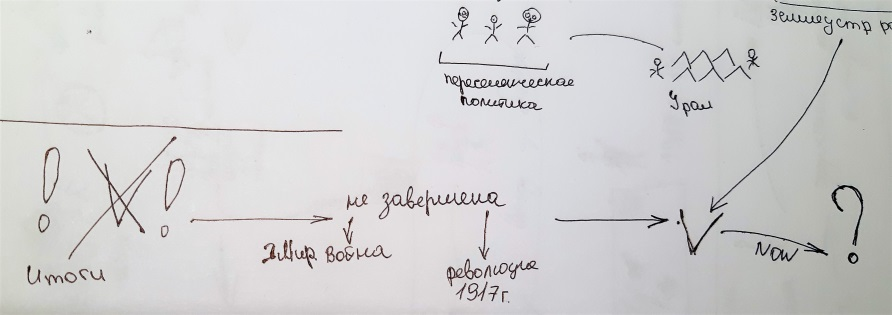 землеустр
переселенческая
политика
Урал
не завершена
Мир. война
революция
1917г.
Итоги
Now
?